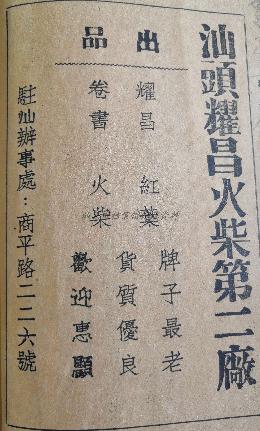 汕頭耀昌火柴第二廠
出品
耀昌 紅葉
卷書 火柴
牌子最老
貨質優良
歡迎惠顧
駐汕辦事處：商平路二二六號